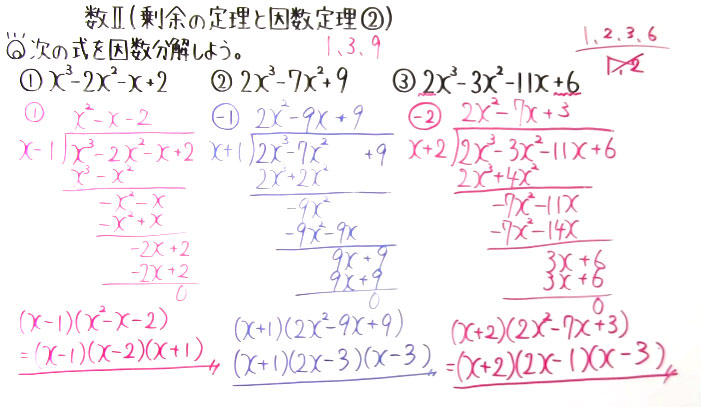 数Ⅱ(剰余の定理と因数定理②)
◎次の式を因数分解しよう。
1、3、9
1、2、3、6
1、2
① x³-2x²-x+2
② 2x³-7x²+9
③ 2x³-3x²-11x+6
①
x²-x-2
x-1 x³-2x²-x+2
x³-x²
-x²-x
-x²+x
-2x+2
-2x+2
0
(x-1)(x²-x-2)
=(x-1)(x-2)(x+1)
-1
2x²-9x+9
x+1 2x³-7x² +9
2x³+2x²
-9x²
-9x²-9x
9x+9
9x+9
0
(x+1)(2x²-9x+9)
(x+1)(2x-3)(x-3)
-2
2x²-7x+3
x+2 2x³-3x²-11x+6
2x³+4x²
-7x²-11x
-7x²-14x
3x+6
3x+6
0
(x+2)(2x²-7x+3)
=(x+2)(2x-1)(x-3)